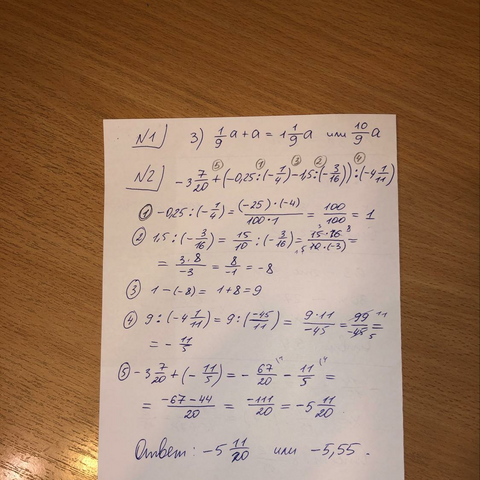 N1) 3) 1/9 a + a = 1 1/9 a или 10/9 a
⑤ ① ③ ② ④
N2) -3 7/20 + (-0,25 : (-1/4) - 1,5 : (-3/16)) : (-4 1/11)
① -0,25 : (-1/4) = (-25)·(-4)/100·1 = 100/100 = 1
② 1,5 : (-3/16) = 15/10 : (-3/16) = 15·16/10·(-3) =
= 3·8/-3 = 8/-1 = -8
③ 1 - (-8) = 1 + 8 = 9
④ 9 : (-4 1/11) = 9 : (-45/11) = 9·11/-45 = 99/-45 =
= - 11/5
⑤ -3 7/20 + (- 11/5) = - 67/20 - 11/5 =
= -67-44/20 = -111/20 = -5 11/20
Ответ: -5 11/20 или -5,55.